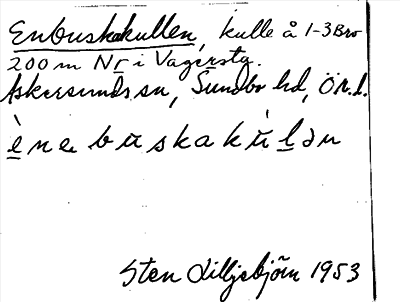 Enbuskakullen, kulle å 1-3 Bro
200 m N r i Vagersty.
Askersunds sn, Sundbo hd, Ör. l.
Sten Lilljebjörn 1953